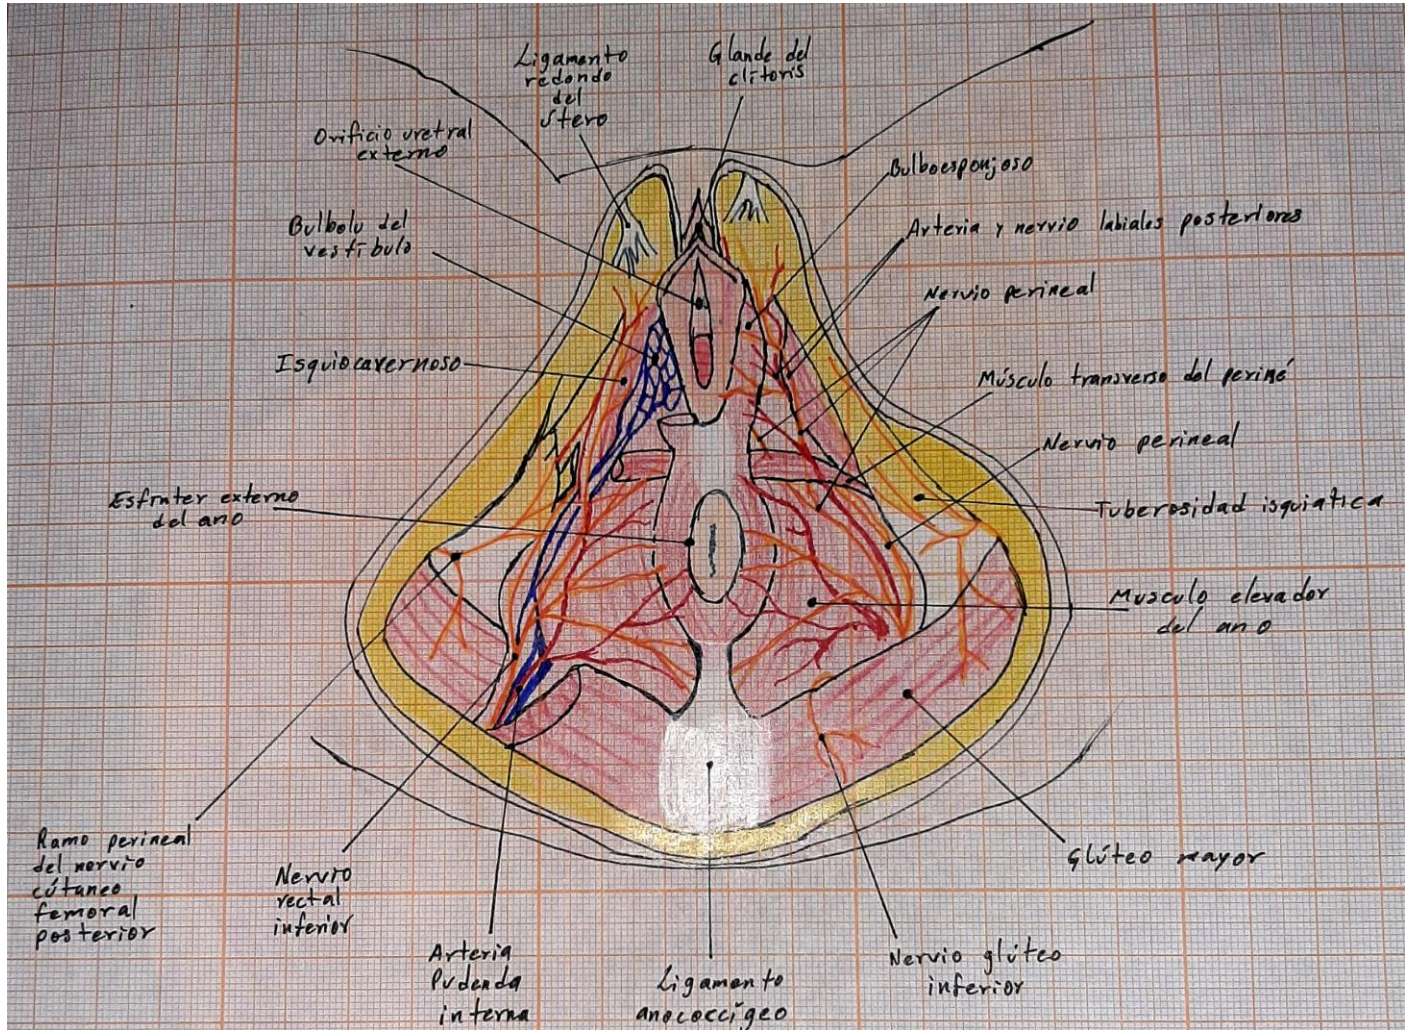 Ligamento
redondo
del
útero
Glande del
clítoris
Orificio uretral
externo
Bulboesponjoso
Bulbolu del
vestíbulo
Arteria y nervio labiales posteriores
Nervio perineal
Isquiocavernoso
Músculo transverso del periné
Nervio perineal
Esfínter externo
del ano
Tuberosidad isquiatica
Musculo elevador
del ano
Ramo perineal
del nervio
cútaneo
femoral
posterior
Nervio
rectal
inferior
Glúteo mayor
Arteria
Pudenda
interna
Ligamento
anococcígeo
Nervio glúteo
inferior